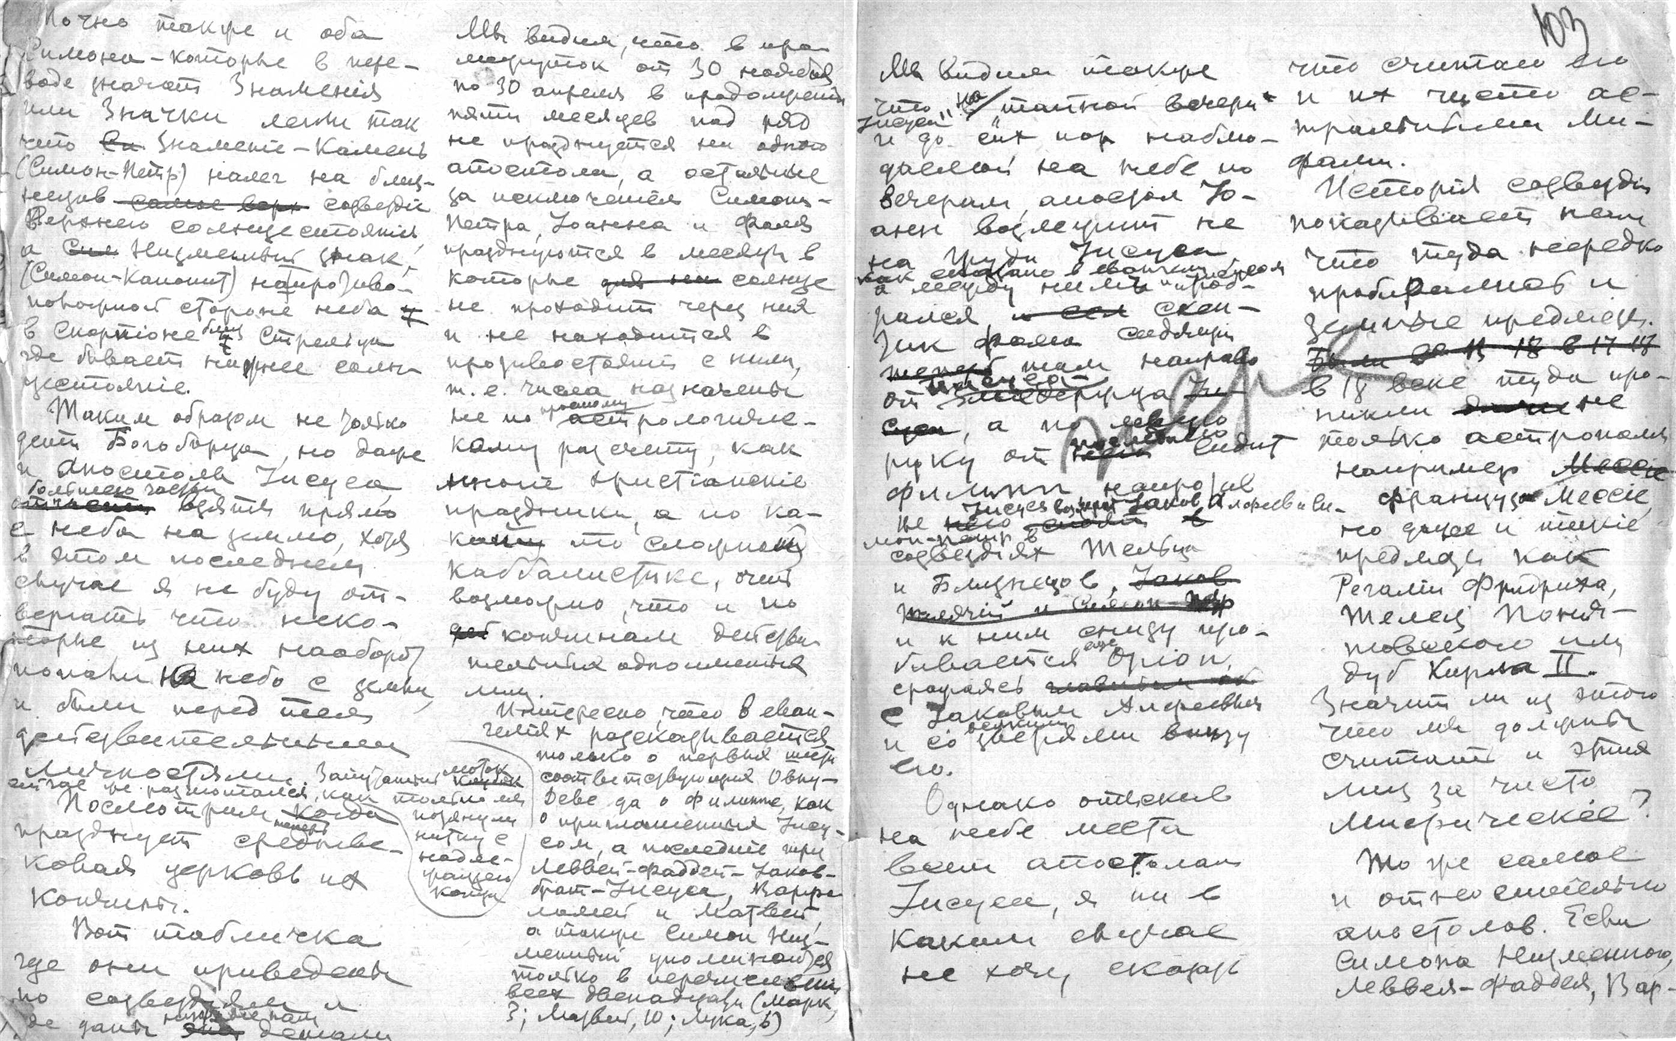 Точно также и оба
Симона - которые в пере-
воде значат Знаменiя
или Значки легли так
что Знаменiе-Камень
(Симон-Петр) налег на близ-
нецов созвездiе
Верхнего солнцестоянiя,
а Низменный знак,
(Симон-Кананит) на противо-
положной стороне неба
в Скорпiоне близ Стрельца
где бывает нижнее солн-
цестоянiе.
Таким образом не только
Богоборца, но даже
и Апостолы Iисуса,
большею частью взяты прямо
с неба на землю, хотя
в этом последнем
случае я не буду от-
вергать что неко-
торые из них наоборот
попали на небо с земли,
и были перед тем
действительными
личностями.
Посмотрим теперь когда
празднует средневе-
ковая церковь их
кончины.
Вот табличка
где они приведены
по созвездиям и
где даны детали
Мы видим, что в про-
межуток от 30 ноября
по 30 апреля в продолжении
пяти месяцев под ряд
не празднуется ни одного
апостола, а остальные
за исключением Симона-
Петра, Iоанна и Фомы
празднуются в месяцы в
которые солнце
не проходит через них
и не находится в
противостоянии с ними,
т.е. числа назначены
не по простому астрологиче-
скому расчету, как
многие христiанскiе
праздники, а по ка-
кой то сложной
каббалистике, очень
возможно, что и по
кончинам действи-
тельных одноименных
лиц.
Интересно, что в еван-
гелiях рассказывается
только о первых шести
соответствующих Овну-
Деве да о Филиппе, как
о приглашенных Iису-
сом, а последние три
Леввей-Фаддей-Iаков-
брат-Iисуса, Варфо-
ломей и Матвей,
а также Симон Низ-
менный упоминаются
только в перечислении
всех двенадцати (Марк,
3; Матвей, 10; Лука, 6)
103
Мы видим также
что на "тайной вечери"
Iисуса
и до сих пор наблю-
даемой на небе по
вечерам, апостол Iо-
анн возлежит не
на груди Iисуса
как сказано в евангелии
а между ними и Iисусом проб-
рался скеп-
тик Фома сидящий
там направо
от Iисуса
, а по левую
руку от последнего сидит
Филипп напротив
Iисуса возлежат Iаков Алфеев и Си-
мон-Петр в
созвездiях Тельца
и Близнецов,
и к ним снизу про-
бивается еще Орiон,
сражаясь
с Iаковым Алфеевым
и со зверями внизу
его.
Однако отыскав
на небе места
всем апостолам
Iисуса, я ни в
каком случае
не хочу сказать
что считаю его
и их чисто ас-
тральными Ми-
фами.
Исторiя созвездiй
показывает нам
что туда нередко
пробирались и
земные предметы.
в 18 веке туда про-
никли не
только астрономы
например
француз Мессiе,
но даже и такiе
предметы как
Регалiи Фридриха,
Телец Поня-
товского или
дуб Карла II.
Значит ли из этого
что мы должны
считать и этих
лиц за чисто
мифическiе?
То же самое
и относительно
апостолов. Если
Симона Низменного,
Леввея-Фаддея, Вар-